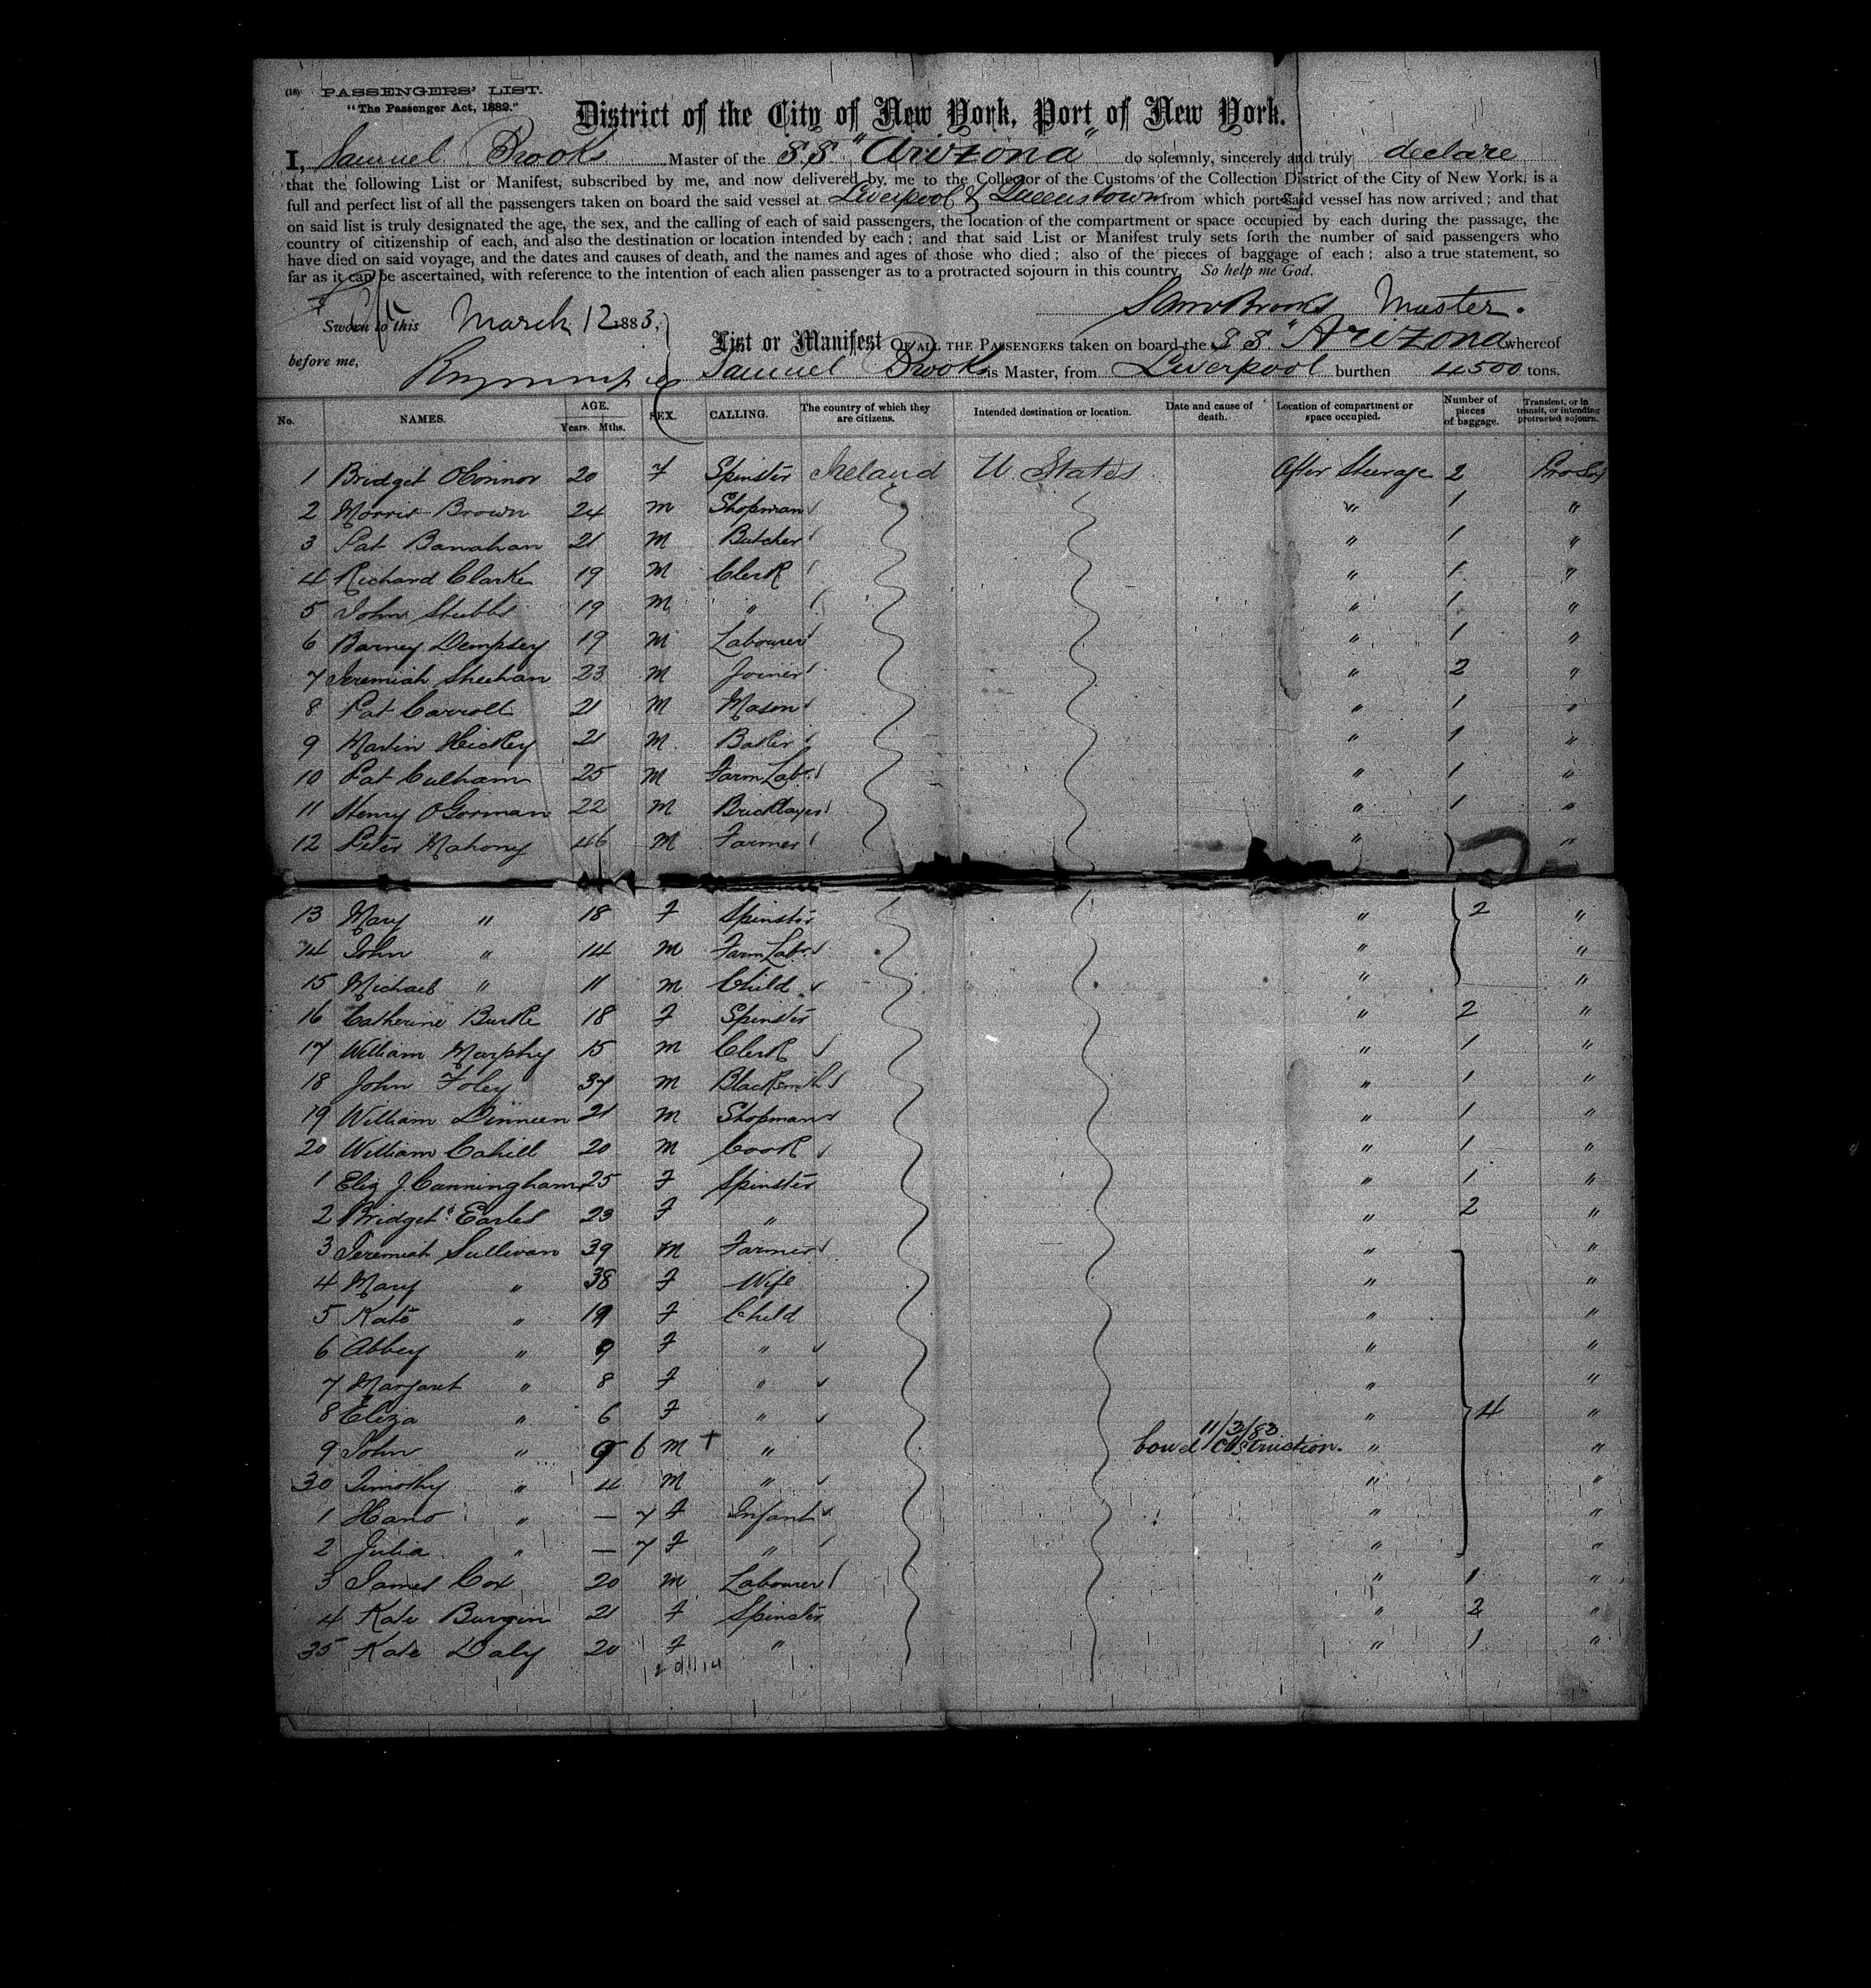 (18) PASSENGERS' LIST.
"The Passenger Act, 1882."
District of the City of New York, Port of New York.
I, Samuel Brooks Master of the S.S. "Arizona" do solemnly, sincerely and truly declare
that the following List or Manifest, subscribed by me, and now delivered by me to the Collector of the Customs of the Collection District of the City of New York, is a
full and perfect list of all the passengers taken on board the said vessel at Liverpool & Queenstown from which port said vessel has now arrived; and that
on said list is truly designated the age, the sex, and the calling of each of said passengers, the location of the compartment or space occupied by each during the passage, the
country of citizenship of each, and also the destination or location intended by each; and that said List or Manifest truly sets forth the number of said passengers who
have died on said voyage, and the dates and causes of death, and the names and ages of those who died; also of the pieces of baggage of each; also a true statement, so
far as it can be ascertained, with reference to the intention of each alien passenger as to a protracted sojourn in this country. So help me God.
Saml Brooks Master.
Sworn to this March 12 1883,
before me,
List or Manifest OF ALL THE PASSENGERS taken on board the S.S. "Arizona whereof
Samuel Brooks is Master, from Liverpool burthen 4500 tons.
No. NAMES. AGE. Years. Mths. SEX. CALLING. The country of which they are citizens. Intended destination or location. Date and cause of death. Location of compartment or space occupied. Number of pieces of baggage. Transient, or in transit, or intending protracted sojourn.
1 Bridget O'Connor 20 F Spinster Ireland U. States After Steerage 2 Pro Soj
2 Morris Brown 24 M Shopman " 1 "
3 Pat Banahan 21 M Butcher " 1 "
4 Richard Clarke 19 M Clerk " 1 "
5 John Stubbs 19 M " " 1 "
6 Barney Dempsey 19 M Labourer " 1 "
7 Jeremiah Sheehan 23 M Joiner " 2 "
8 Pat Carroll 21 M Mason " 1 "
9 Martin Hickey 21 M Baker " 1 "
10 Pat Culham 25 M Farm Lab. " 1 "
11 Henry O'Gorman 22 M Bricklayer " 1 "
12 Peter Mahony 46 M Farmer " "
13 Mary " 18 F Spinster " 2 "
14 John " 14 M Farm Lab. " "
15 Michael " 11 M Child " "
16 Catherine Burke 18 F Spinster " 2 "
17 William Murphy 15 M Clerk " 1 "
18 John Foley 37 M Blacksmith " 1 "
19 William Dinneen 21 M Shopman " 1 "
20 William Cahill 20 M Cook " 1 "
1 Eliz J. Cunningham 25 F Spinster " 1 "
2 Bridget Earles 23 F " " 2 "
3 Jeremiah Sullivan 39 M Farmer " "
4 Mary " 38 F Wife " "
5 Kate " 19 F Child " "
6 Abbey " 9 F " " "
7 Margaret " 8 F " " "
8 Eliza " 6 F " " 4 "
9 John " 6 M + " 11/3/83 bowel obstruction. " "
30 Timothy " 4 M " " "
1 Hano " — 7 F Infant " "
2 Julia " — 7 F " " "
3 James Cox 20 M Labourer " 1 "
4 Kate Burgin 21 F Spinster " 2 "
35 Kate Daly 20 F " " 1 "